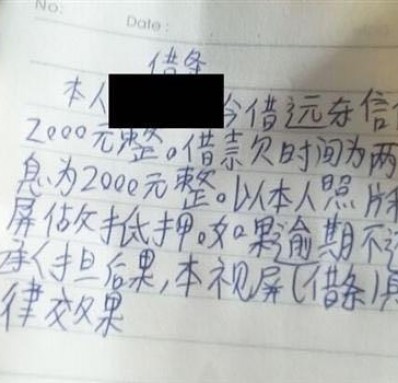 No: Date:
借条
本人 今借远东信
2000元整。借款欠时间为两
息为2000元整。以本人照片
屏做抵押。如果逾期不还
承担后果,本视屏(借条)具
律效果